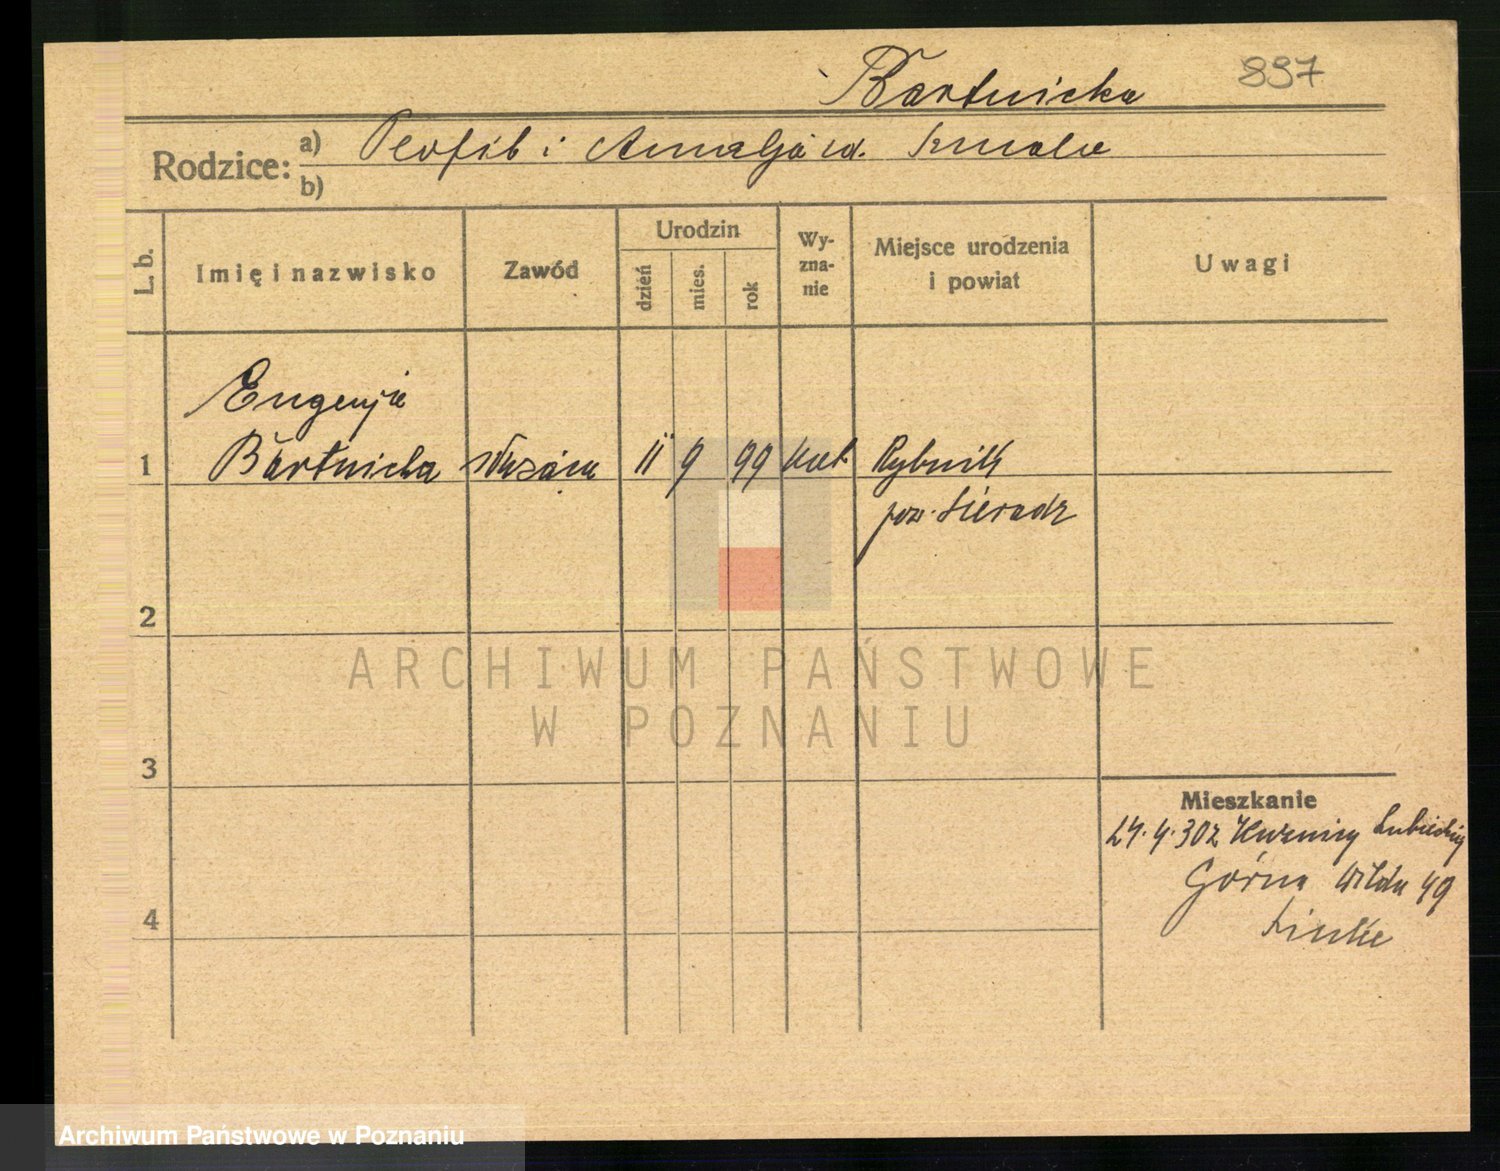 Bartnicka 897
Rodzice: a) Teofil i Amalja
b)
L. b. Imię i nazwisko Zawód Urodzin dzień mies. rok Wy-zna-nie Miejsce urodzenia i powiat Uwagi
Eugenja
1 Bartnicka służąca 11 9 99 kat Rybnik
pow. Sieradz
2
ARCHIWUM PAŃSTWOWE
W POZNANIU
3
Mieszkanie
4.30 z Kuźnicy
Górna Wilda 49
4
Archiwum Państwowe w Poznaniu